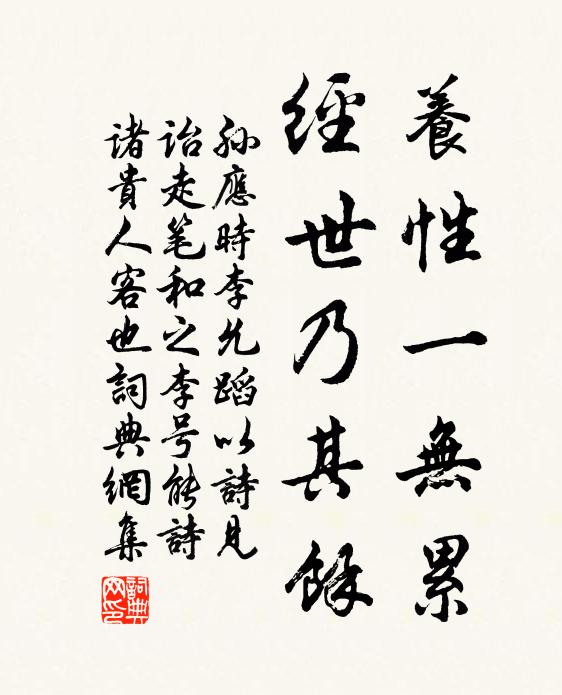 養性一無累
經世乃其餘
孙應時李允蹈以詩見
詒走笔和之李号能詩
诸貴人客也詞典網集
詞典网印